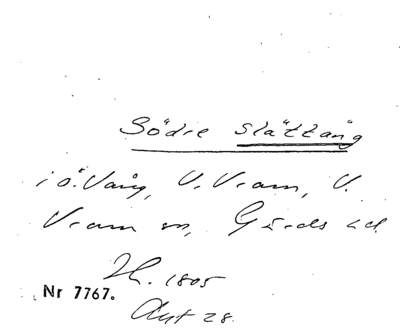 Södre Slättäng
i ö. Vång, V. Vram, V.
Vram sn, Gärds hd
H. 1805
Nr 7767.
Akt 28.